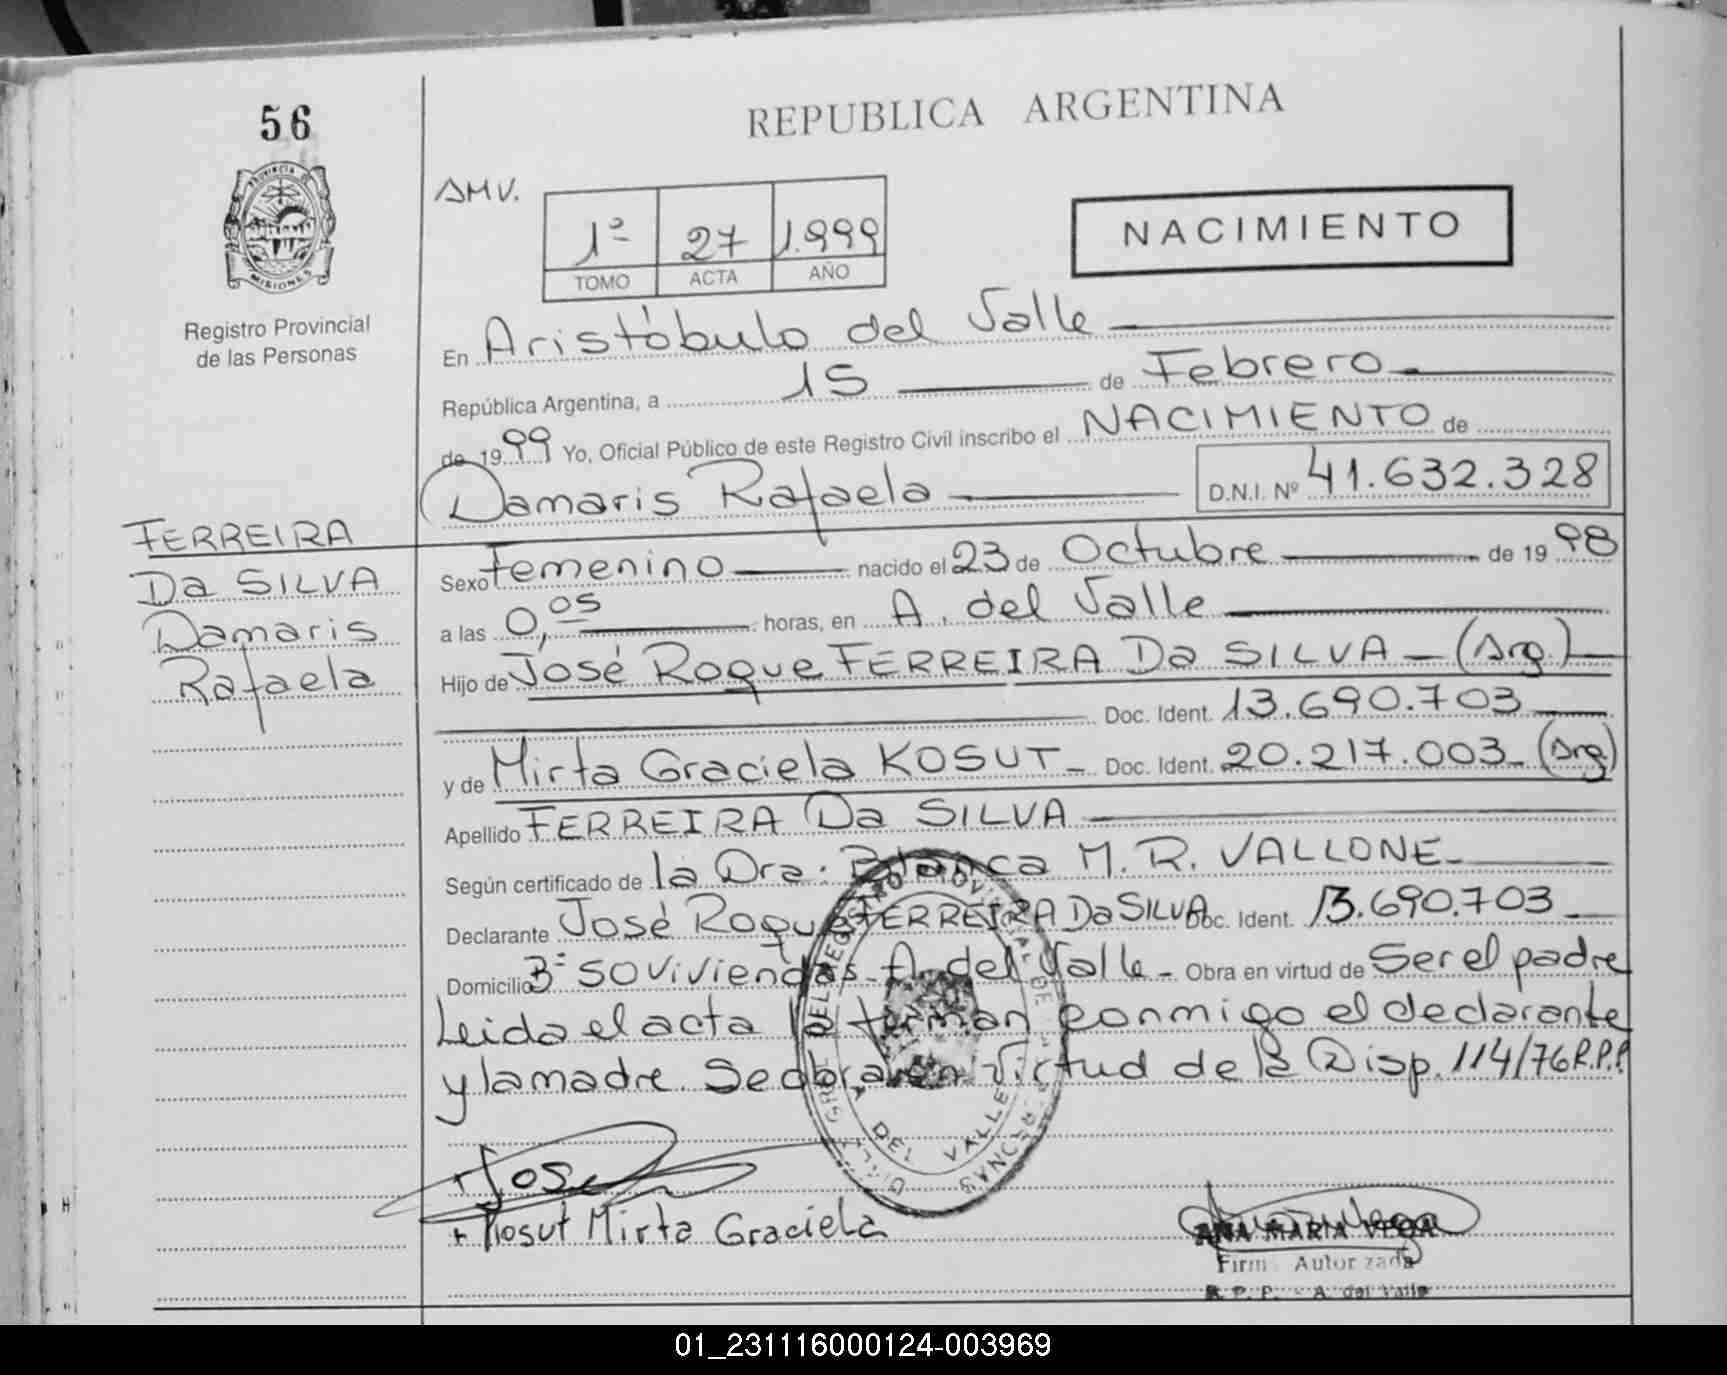 56
REPUBLICA ARGENTINA
PROVINCIA DE
MISIONES
Registro Provincial
de las Personas
AMV.
1º 27 1.999
TOMO ACTA AÑO
NACIMIENTO
En Aristóbulo del Valle
República Argentina, a 15 de Febrero
de 1999 Yo, Oficial Público de este Registro Civil inscribo el NACIMIENTO de
Damaris Rafaela D.N.I. Nº 41.632.328
FERREIRA
DA SILVA
Damaris
Rafaela
Sexo Femenino nacido el 23 de Octubre de 1998
a las 0,05 horas, en A. del Valle
Hijo de José Roque FERREIRA DA SILVA - (Arg.)
Doc. Ident. 13.690.703
y de Mirta Graciela KOSUT - Doc. Ident. 20.217.003 - (Arg)
Apellido FERREIRA DA SILVA
Según certificado de la Dra. Blanca M. R. VALLONE
Declarante José Roque FERREIRA DA SILVA Doc. Ident. 13.690.703
Domicilio Bº 50 viviendas - A. del Valle - Obra en virtud de Ser el padre
Leida el acta la firman conmigo el declarante
y la madre. Se obra en virtud de la Disp. 114/76 R.P.P.
DEL REGISTRO PROVINCIAL DE
A. DEL VALLE
+ José
+ Kosut Mirta Graciela
ANA MARIA VEGA
Firm Autorizada
R. P. P. - A. del Valle
01_231116000124-003969